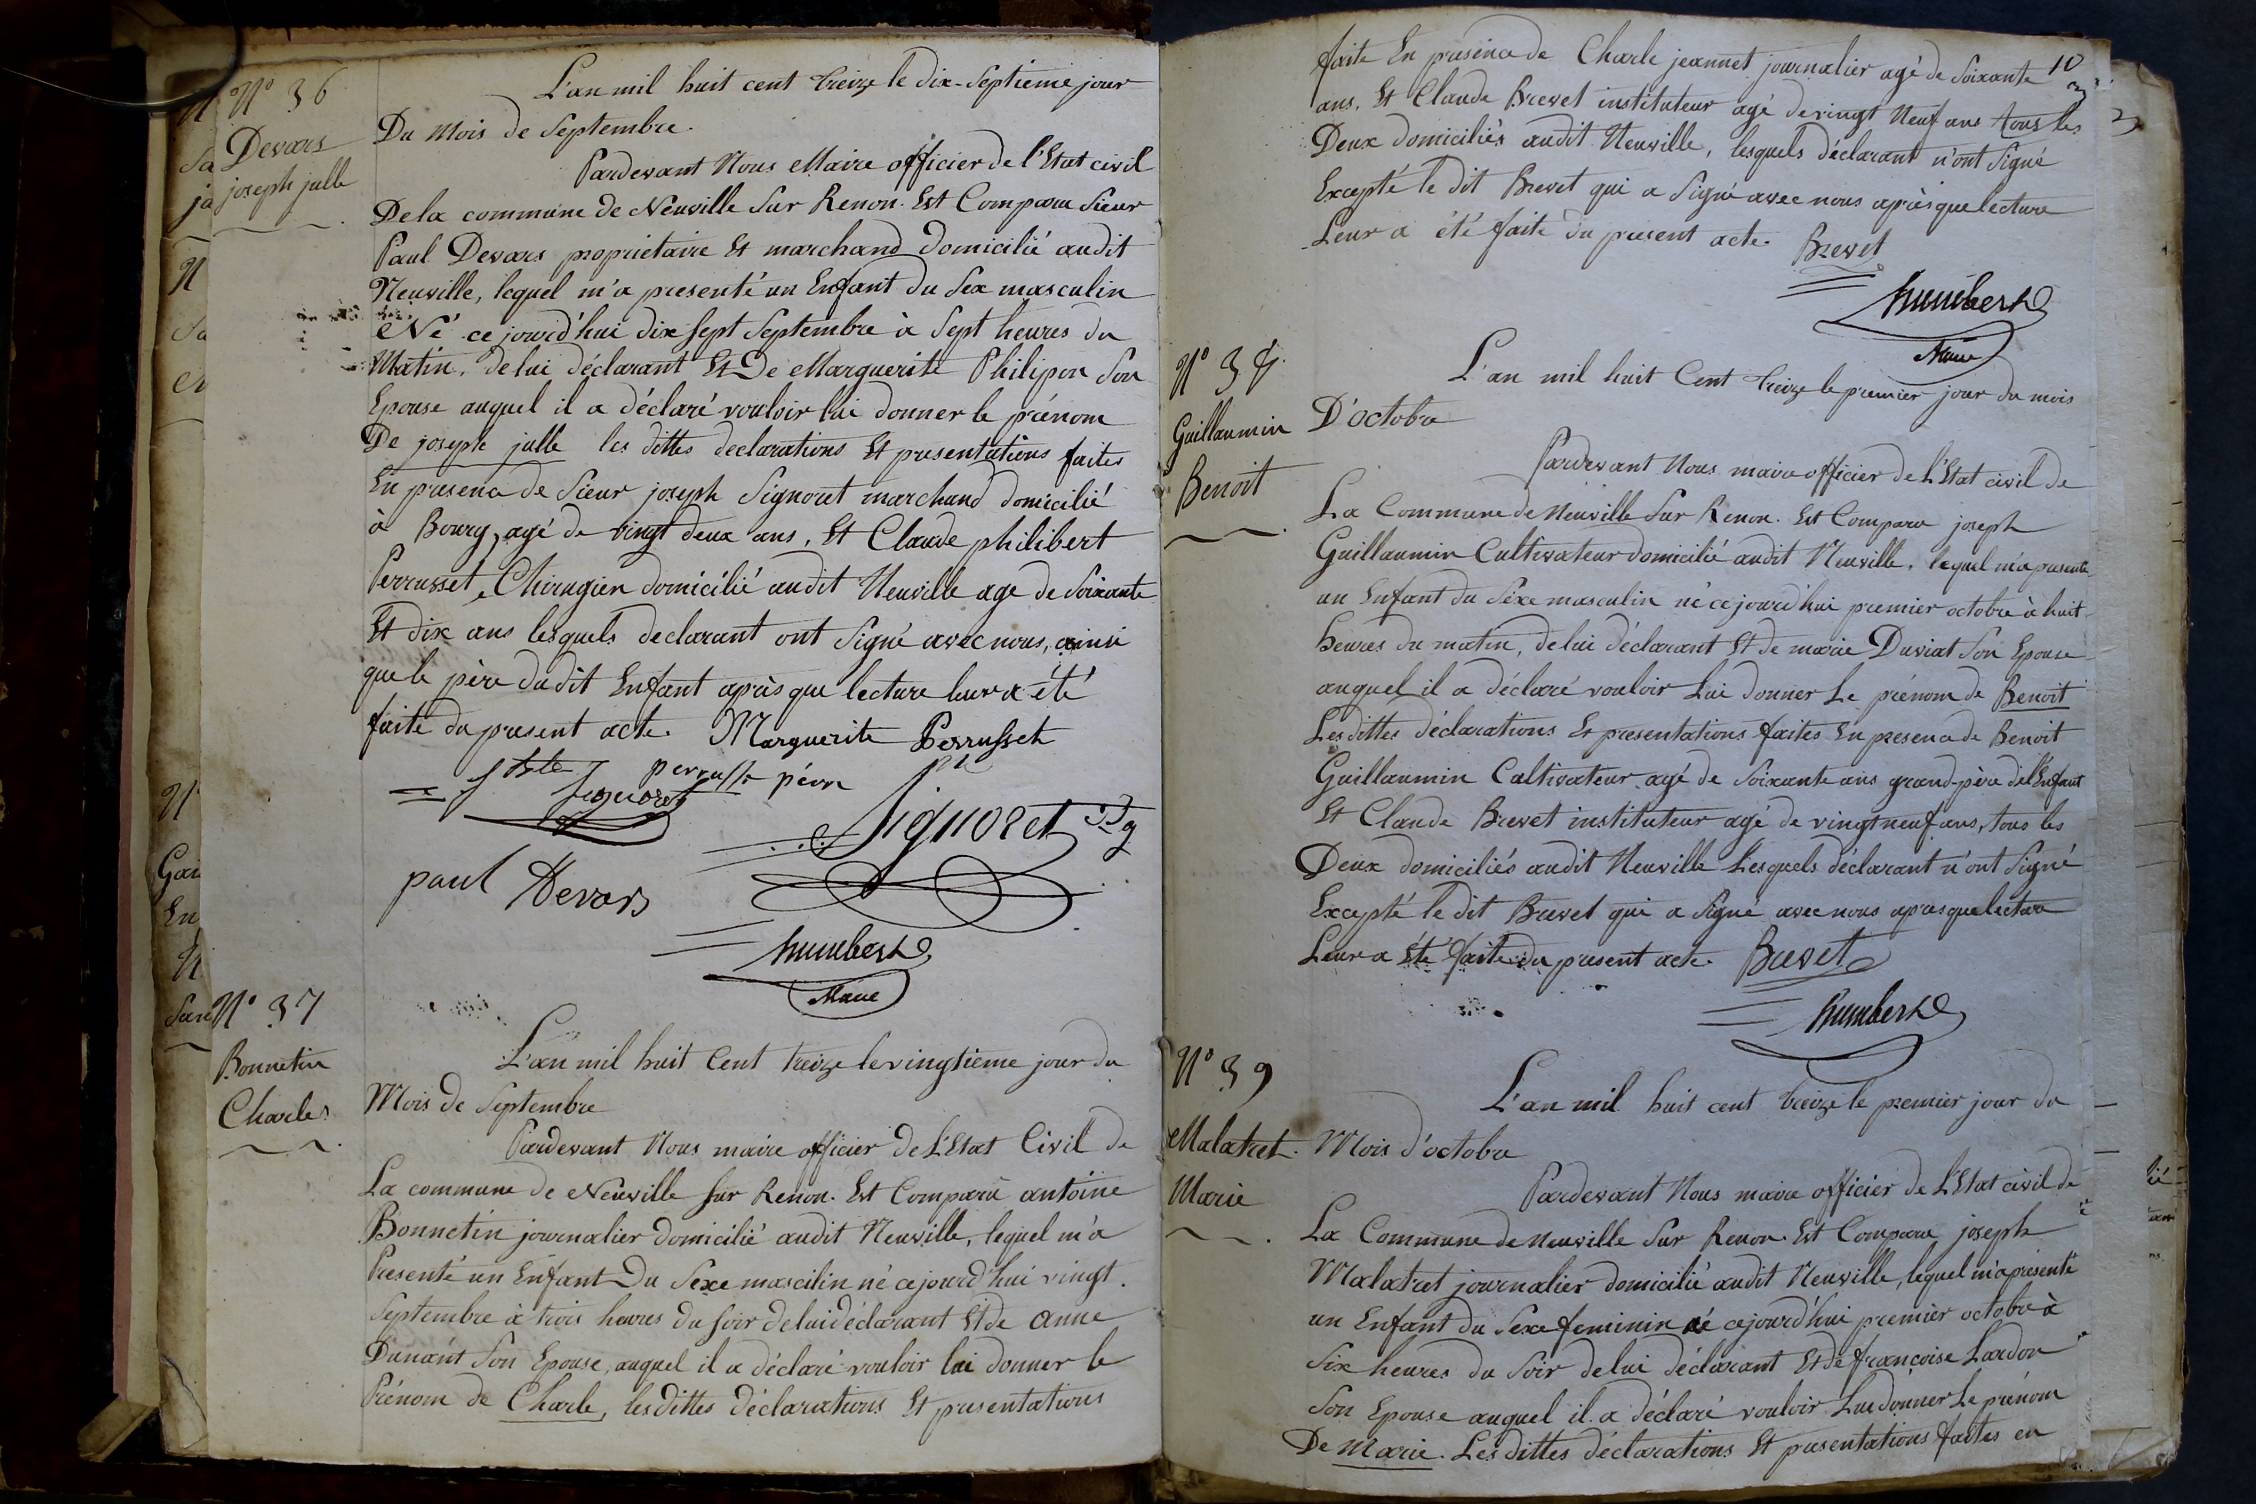 N° 36
Devars
joseph julle
L'an mil huit cent treize le dix-Septieme jour
Du Mois de Septembre.
Pardevant Nous Maire officier de l'Etat civil
De la commune de Neuville Sur Renon. Est Comparu Sieur
Paul Devars proprietaire Et marchand domicilié audit
Neuville, lequel m'a presenté un Enfant du Sex masculin
Né ce jourd'hui dix Sept Septembre à Sept heures du
Matin, de lui déclarant Et De Marguerite Philipon Son
Epouse auquel il a déclaré vouloir lui donner le prénom
De joseph julle les dittes declarations Et presentations faites
En presence de Sieur joseph Signoret marchand domicilié
à Bourg, agé de vingt deux ans, Et Claude philibert
Perrusset, Chirugien domicilié audit Neuville age de Soixante
Et dix ans lesquels declarant ont Signé avec nous, ainsi
que le père dudit Enfant après que lecture leur a été
faite du present acte. Marguerite Perrusset
Signoret
Signoret
paul Devars
humbert
Maire
N° 37
Bonnetin
Charles
L'an mil huit Cent treize le vingtieme jour du
Mois de Septembre
Pardevant Nous maire officier de L'Etat Civil de
La commune de Neuville Sur Renon. Est Comparu antoine
Bonnetin journalier domicilié audit Neuville, lequel m'a
Presenté un Enfant Du Sexe mascilin né ce jourd'hui vingt
Septembre à trois heures du Soir de lui déclarant Et de anne
Dunánt Son Epouse, auquel il a déclaré vouloir lui donner le
Prénom de Charle, les dittes déclarations Et presentations
10
faite En presence de Charle jeannet journalier agé de Soixante
ans, Et Claude Brevet instituteur agé de vingt Neuf ans tous les
Deux domiciliés audit Neuville, lesquels déclarant n'ont Signé
Excepté le dit Brevet qui a Signé avec nous après que lecture
Leur a été faite du present acte. Brevet
humbert
Maire
N° 38
Guillaumin
Benoit
L'an mil huit Cent treize le premier jour du mois
D'octobre
Pardevant Nous maire officier de L'Etat civil de
La Commune de Neuville Sur Renon. Est Comparu joseph
Guillaumin Cultivateur domicilié audit Neuville, lequel m'a presenté
un Enfant du Sexe masculin né ce jourd'hui premier octobre à huit
heures du matin, de lui déclarant Et de marie Duviat Son Epouse
auquel il a déclaré vouloir Lui donner Le prénom de Benoit
Les dittes déclarations Et presentations faites En presence de Benoit
Guillaumin Cultivateur agé de Soixante ans grand-père de l'Enfant
Et Claude Brevet instituteur agé de vingt neuf ans, tous les
Deux domiciliés audit Neuville Lesquels déclarant n'ont Signé
Excepté le dit Brevet qui a Signé avec nous apres que lecture
Leur a Eté faite du present acte. Brevet
humbert
N° 39
Malatret
Marie
L'an mil huit cent treize le premier jour du
Mois d'octobre
Pardevant Nous maire officier de L'Etat civil de
La Commune de Neuville Sur Renon. Est Comparu joseph
Malatret journalier domicilié audit Neuville, lequel m'a presenté
un Enfant du Sexe feminin né ce jourd'hui premier octobre à
Six heures du Soir de lui déclarant Et de françoise Lardon
Son Epouse auquel il a déclaré vouloir Lui donner Le prénom
De Marie. Les dittes déclarations Et presentations faites en